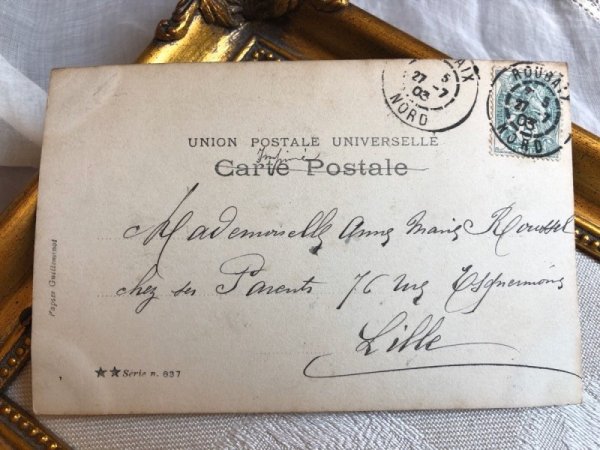 ROUBAIX
5
27 -7
03
NORD
ROUBAIX
5
27 -7
03
NORD
UNION POSTALE UNIVERSELLE
Imprimé
Carte Postale
Mademoiselle Anne Marie Roussel
chez ses Parents 76 rue Esquermoise
Lille
Papier Guilleminot
★★ Série n. 837